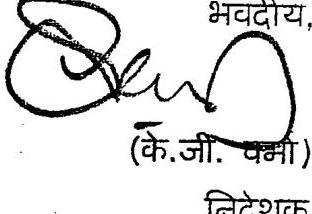 भवदीय,
(के.जी. वर्मा)
निदेशक